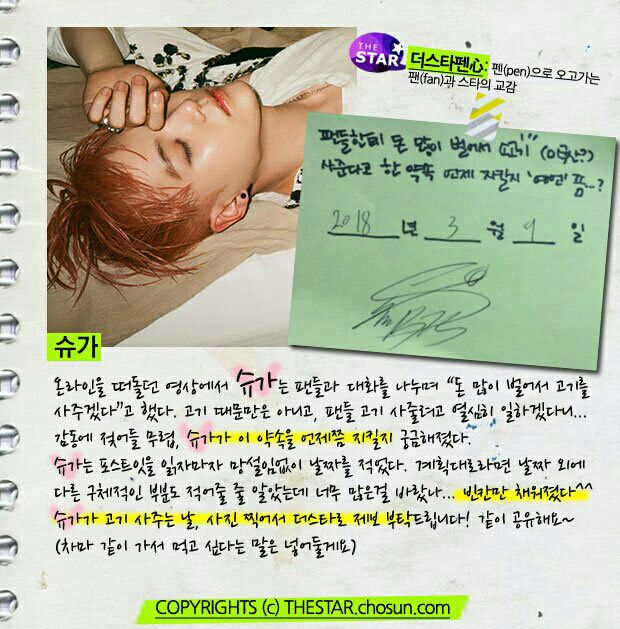 THE STAR
더스타펜心: 펜(pen)으로 오고가는
팬(fan)과 스타의 교감
팬들한테 돈 많이 벌어서
사준다고 한 약속 언제 지킬지
2018 년 3 월 9 일
BTS
슈가
온라인을 떠돌던 영상에서 슈가는 팬들과 대화를 나누며 “돈 많이 벌어서 고기를
사주겠다”고 했다. 고기 때문만은 아니고, 팬들 고기 사줄려고 열심히 일하겠다니...
감동에 젖어들 무렵, 슈가가 이 약속을 언제쯤 지킬지 궁금해졌다.
슈가는 포스트잇을 읽자마자 망설임없이 날짜를 적었다. 계획대로라면 날짜 외에
다른 구체적인 부분도 적어줄 줄 알았는데 너무 많은걸 바랐나... 빈칸만 채워졌다^^
슈가가 고기 사주는 날, 사진 찍어서 더스타로 제보 부탁드립니다! 같이 공유해요~
(차마 같이 가서 먹고 싶다는 말은 넣어둘게요)
COPYRIGHTS (c) THESTAR.chosun.com